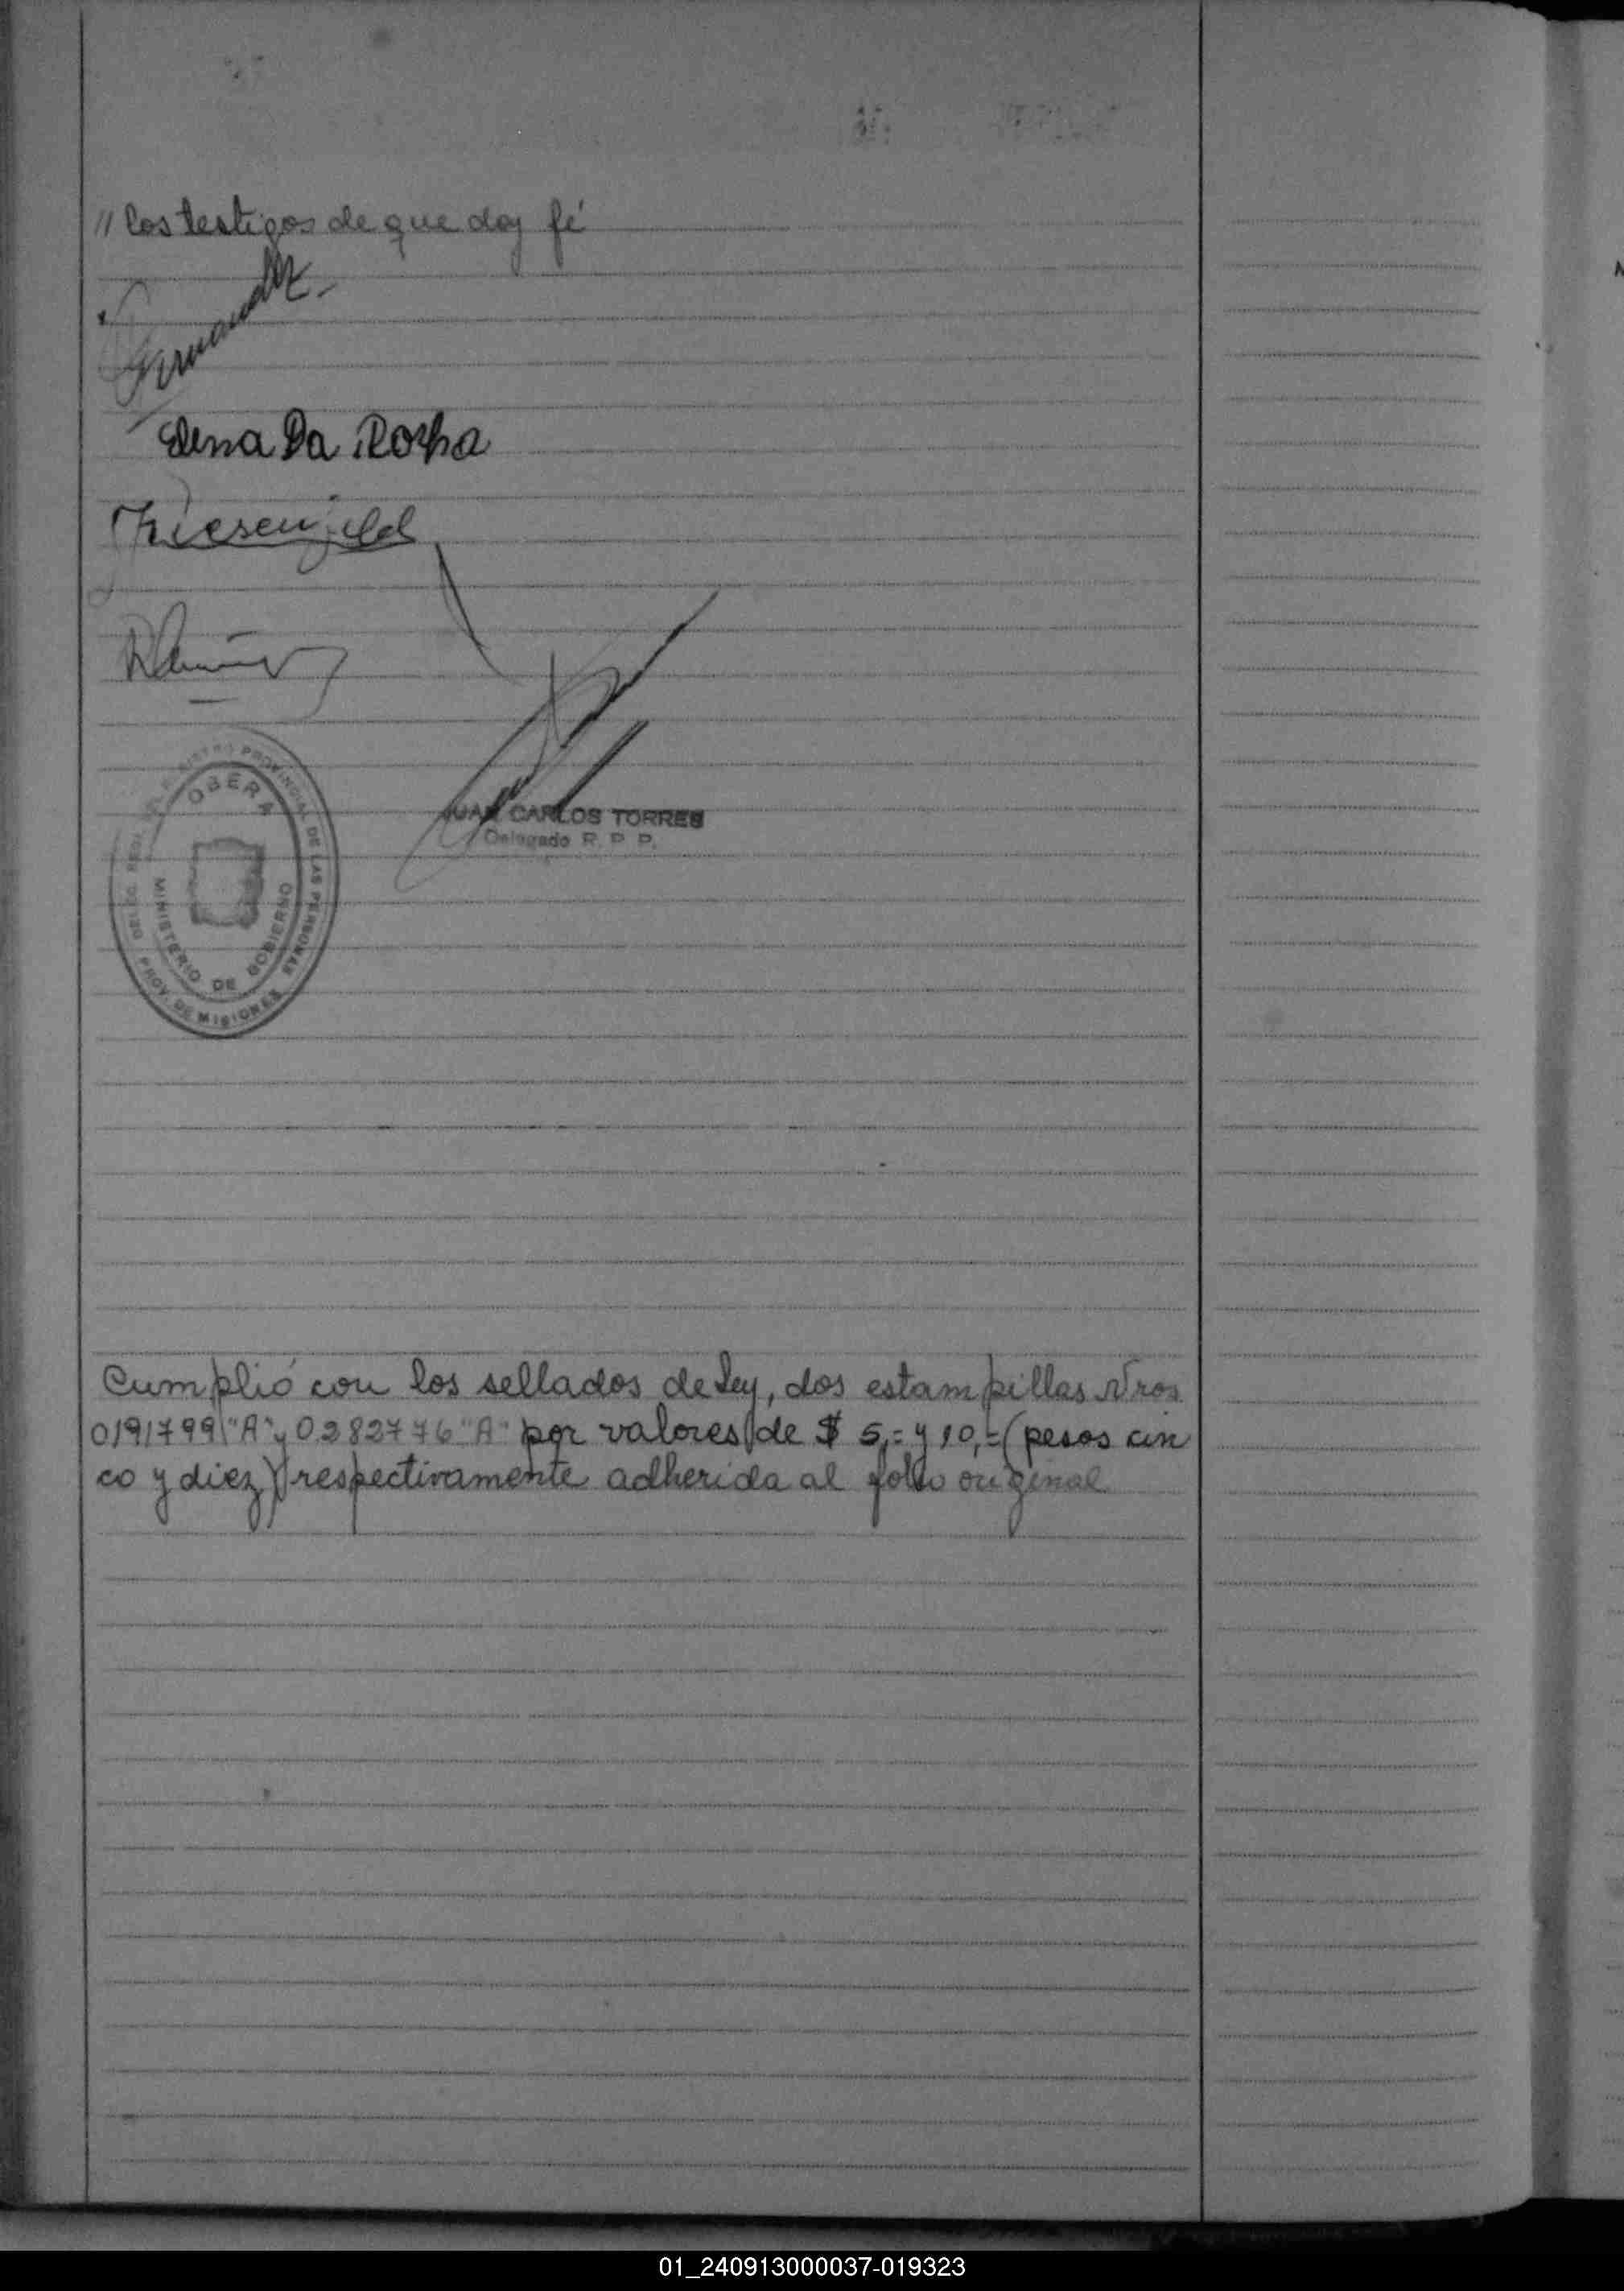 // los testigos de que doy fé
Elena Da Rocha
JUAN CARLOS TORRES
Delegado R. P. P.
REGISTRO PROVINCIAL DE LAS PERSONAS
OBERA
MINISTERIO DE GOBIERNO
PROV. DE MISIONES
Cumplió con los sellados de Ley, dos estampillas Nros
0191799 "A" y 0282776 "A" por valores de $ 5,= y 10,= (pesos cin
co y diez) respectivamente adherida al folio original
01_240913000037-019323